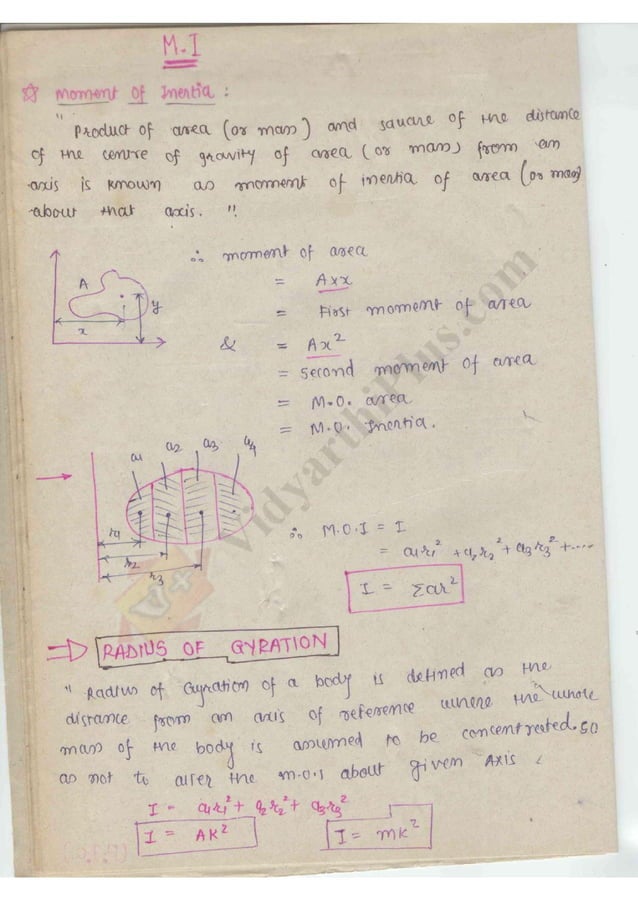 M.I
☆ Moment of Inertia :
" Product of area (or mass) and square of the distance
of the centre of gravity of area (or mass) from an
axis is known as moment of inertia of area (or mass)
about that axis. "
∴ moment of area
A
= Axx
y
= First moment of area
x
& = Ax²
= Second moment of area
= M.O. area
= M.O. Inertia.
a1 a2 a3 a4
VidyarthiPlus.com
V+
r1
r2
r3
∴ M.O.I = I
= a1r1² + a2r2² + a3r3² + .....
I = Σar²
⇒ RADIUS OF GYRATION
" Radius of Gyration of a body is defined as the
distance from an axis of reference where the whole
mass of the body is assumed to be concentrated. so
as not to alter the m.o.i about given Axis
I = a1r1² + a2r2² + a3r3²
I = AK² I = mK²